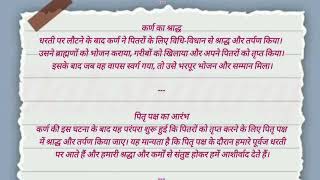 कर्ण का श्राद्ध
धरती पर लौटने के बाद कर्ण ने पितरों के लिए विधि-विधान से श्राद्ध और तर्पण किया।
उसने ब्राह्मणों को भोजन कराया, गरीबों को खिलाया और अपने पितरों को तृप्त किया।
इसके बाद जब वह वापस स्वर्ग गया, तो उसे भरपूर भोजन और सम्मान मिला।
---
पितृ पक्ष का आरंभ
कर्ण की इस घटना के बाद यह परंपरा शुरू हुई कि पितरों को तृप्त करने के लिए पितृ पक्ष
में श्राद्ध और तर्पण किया जाए। यह मान्यता है कि पितृ पक्ष के दौरान हमारे पूर्वज धरती
पर आते हैं और हमारी श्रद्धा और कर्मों से संतुष्ट होकर हमें आशीर्वाद देते हैं।
---